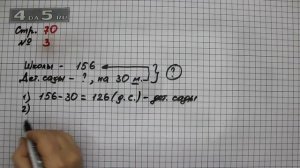 4DA5.RU
Стр. 70
№ 3
Школы - 156
Дет. сады - ?, на 30 м. ?
1) 156-30=126 (д.с.) - дет. сады
2)